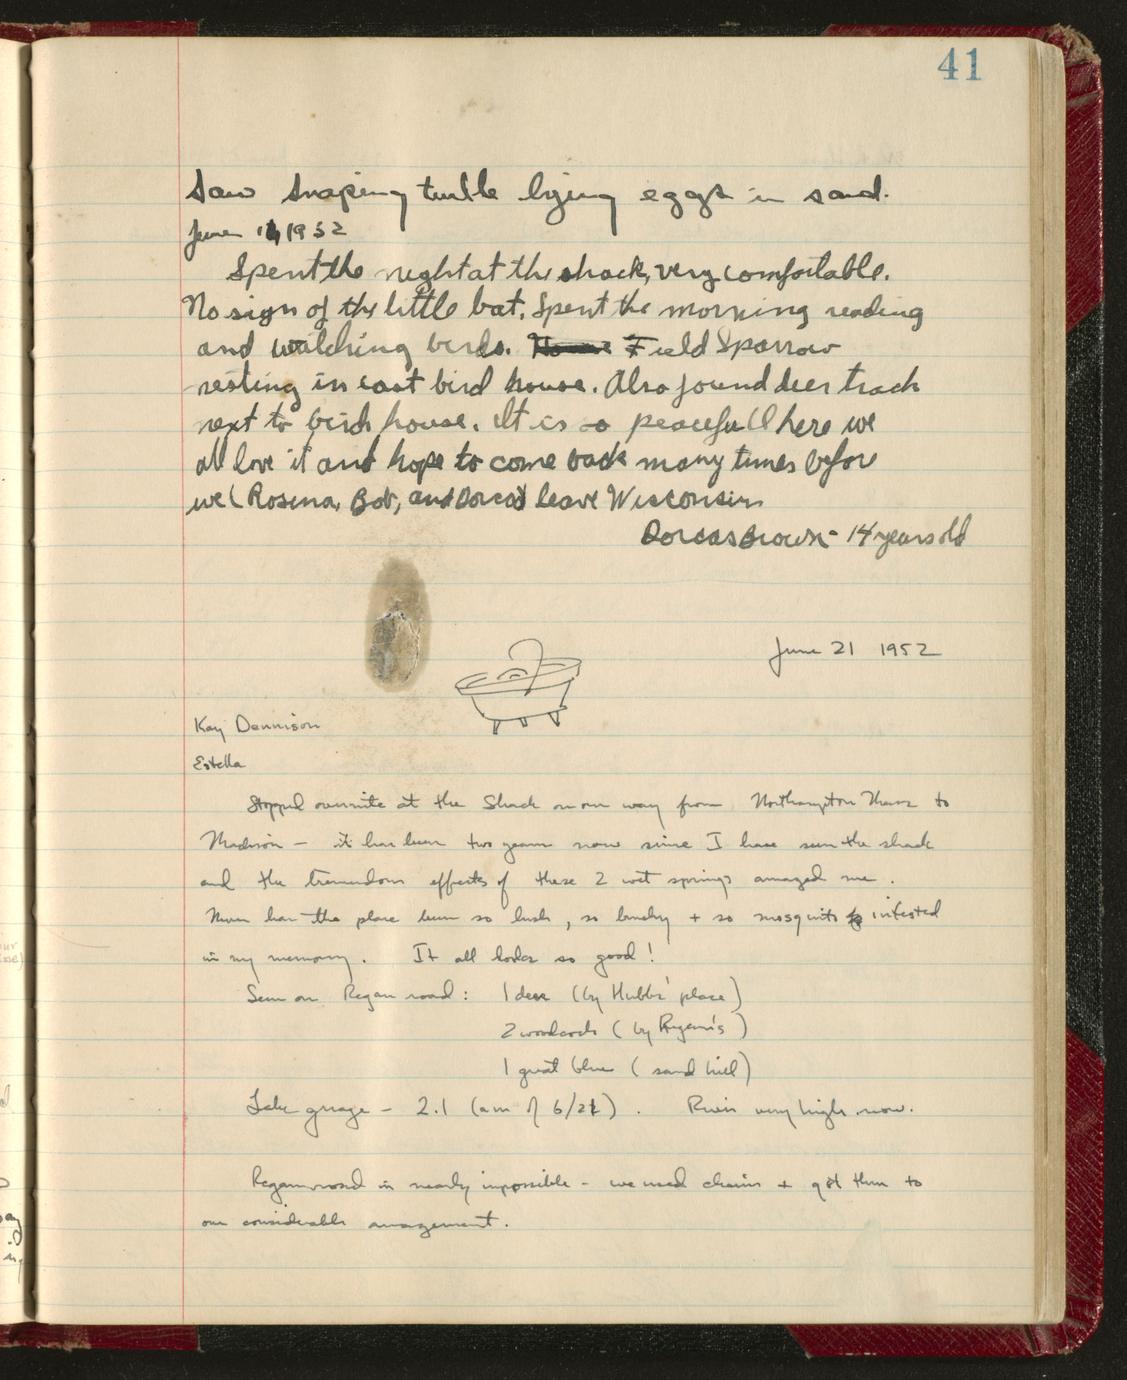 41
Saw snaping turtle lying eggs in sand.
June 1, 1952
Spent the night at the shack, very comfortable.
No sign of the little bat. Spent the morning reading
and watching birds. Field Sparrow
nesting in east bird house. Also found deer track
next to bird house. It is so peacefull here we
all love it and hope to come back many times before
we (Rosina, Bob, and Dorcas) leave Wisconsin
Dorcas Brown - 14 years old
June 21 1952
Kay Dennison
Estella
Stopped overnite at the Shack on our way from Northampton Mass to
Madison - it has been two years now since I have seen the shack
and the tremendous effects of these 2 wet springs amazed me.
Never has the place been so lush, so brushy + so mosquito infested
in my memory. It all looks so good!
Seen on Regan road: 1 deer (by Hubbs' place)
2 woodcock (by Regan's)
1 great blue (sand hill)
Lake guage - 2.1 (am of 6/22). River very high now.
Regan road is nearly impossible - we used chains + got thru to
our considerable amazement.